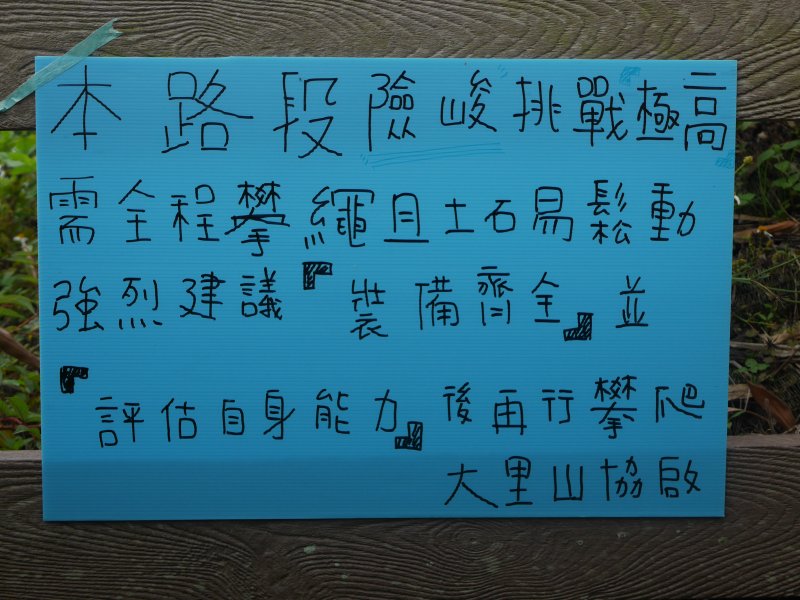 本路段險峻挑戰極高
需全程攀繩且土石易鬆動
強烈建議『裝備齊全』並
『評估自身能力』後再行攀爬
大里山協啟